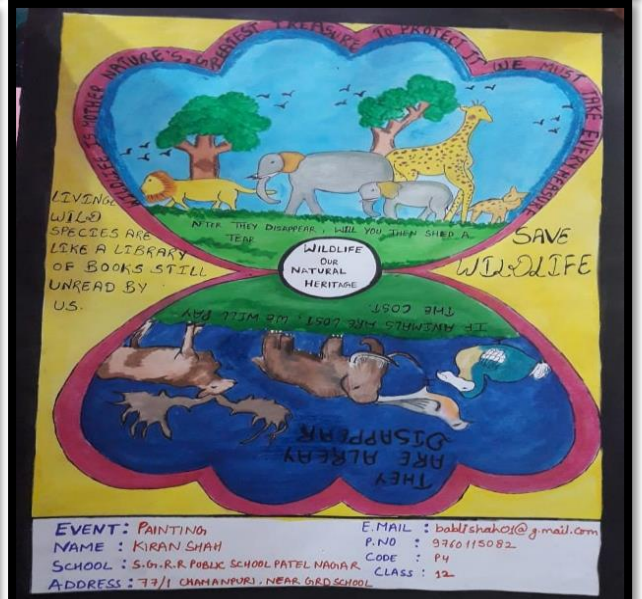 WILDLIFE IS MOTHER NATURE'S, GREATEST TREASURE TO PROTECT IT WE MUST TAKE EVERY MEASURE
LIVING
WILD
SPECIES ARE
LIKE A LIBRARY
OF BOOKS STILL
UNREAD BY
US.
AFTER THEY DISAPPEAR, WILL YOU THEN SHED A
TEAR
SAVE
WILDLIFE
WILDLIFE
OUR
NATURAL
HERITAGE
IF ANIMALS ARE LOST, WE WILL PAY
THE COST.
THEY
ARE ALREAY
DISAPPEAR
EVENT: PAINTING
NAME : KIRAN SHAH
SCHOOL : S.G.R.R PUBLIC SCHOOL PATEL NAGAR
ADDRESS : 77/1 CHAMANPURI, NEAR GRD SCHOOL
E.MAIL : bablishah01@g.mail.com
P.NO : 9760115082
CODE : P4
CLASS : 12